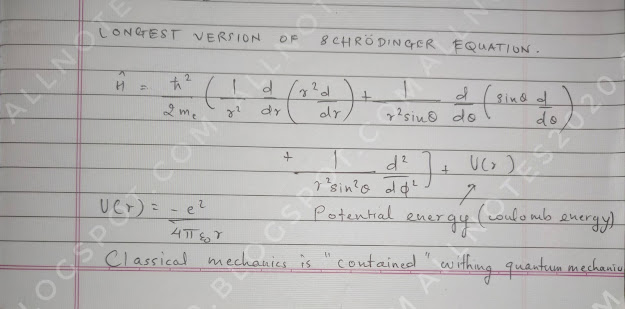 LONGEST VERSION OF SCHRÖDINGER EQUATION.
Ĥ = ħ²/2mₑ (1/r² d/dr (r²d/dr) + 1/r²sinθ d/dθ (sinθ d/dθ)
+ 1/r²sin²θ d²/dϕ²] + U(r)
U(r) = -e²/4πε₀r Potential energy (coulomb energy)
Classical mechanics is "contained" withing quantum mechanic